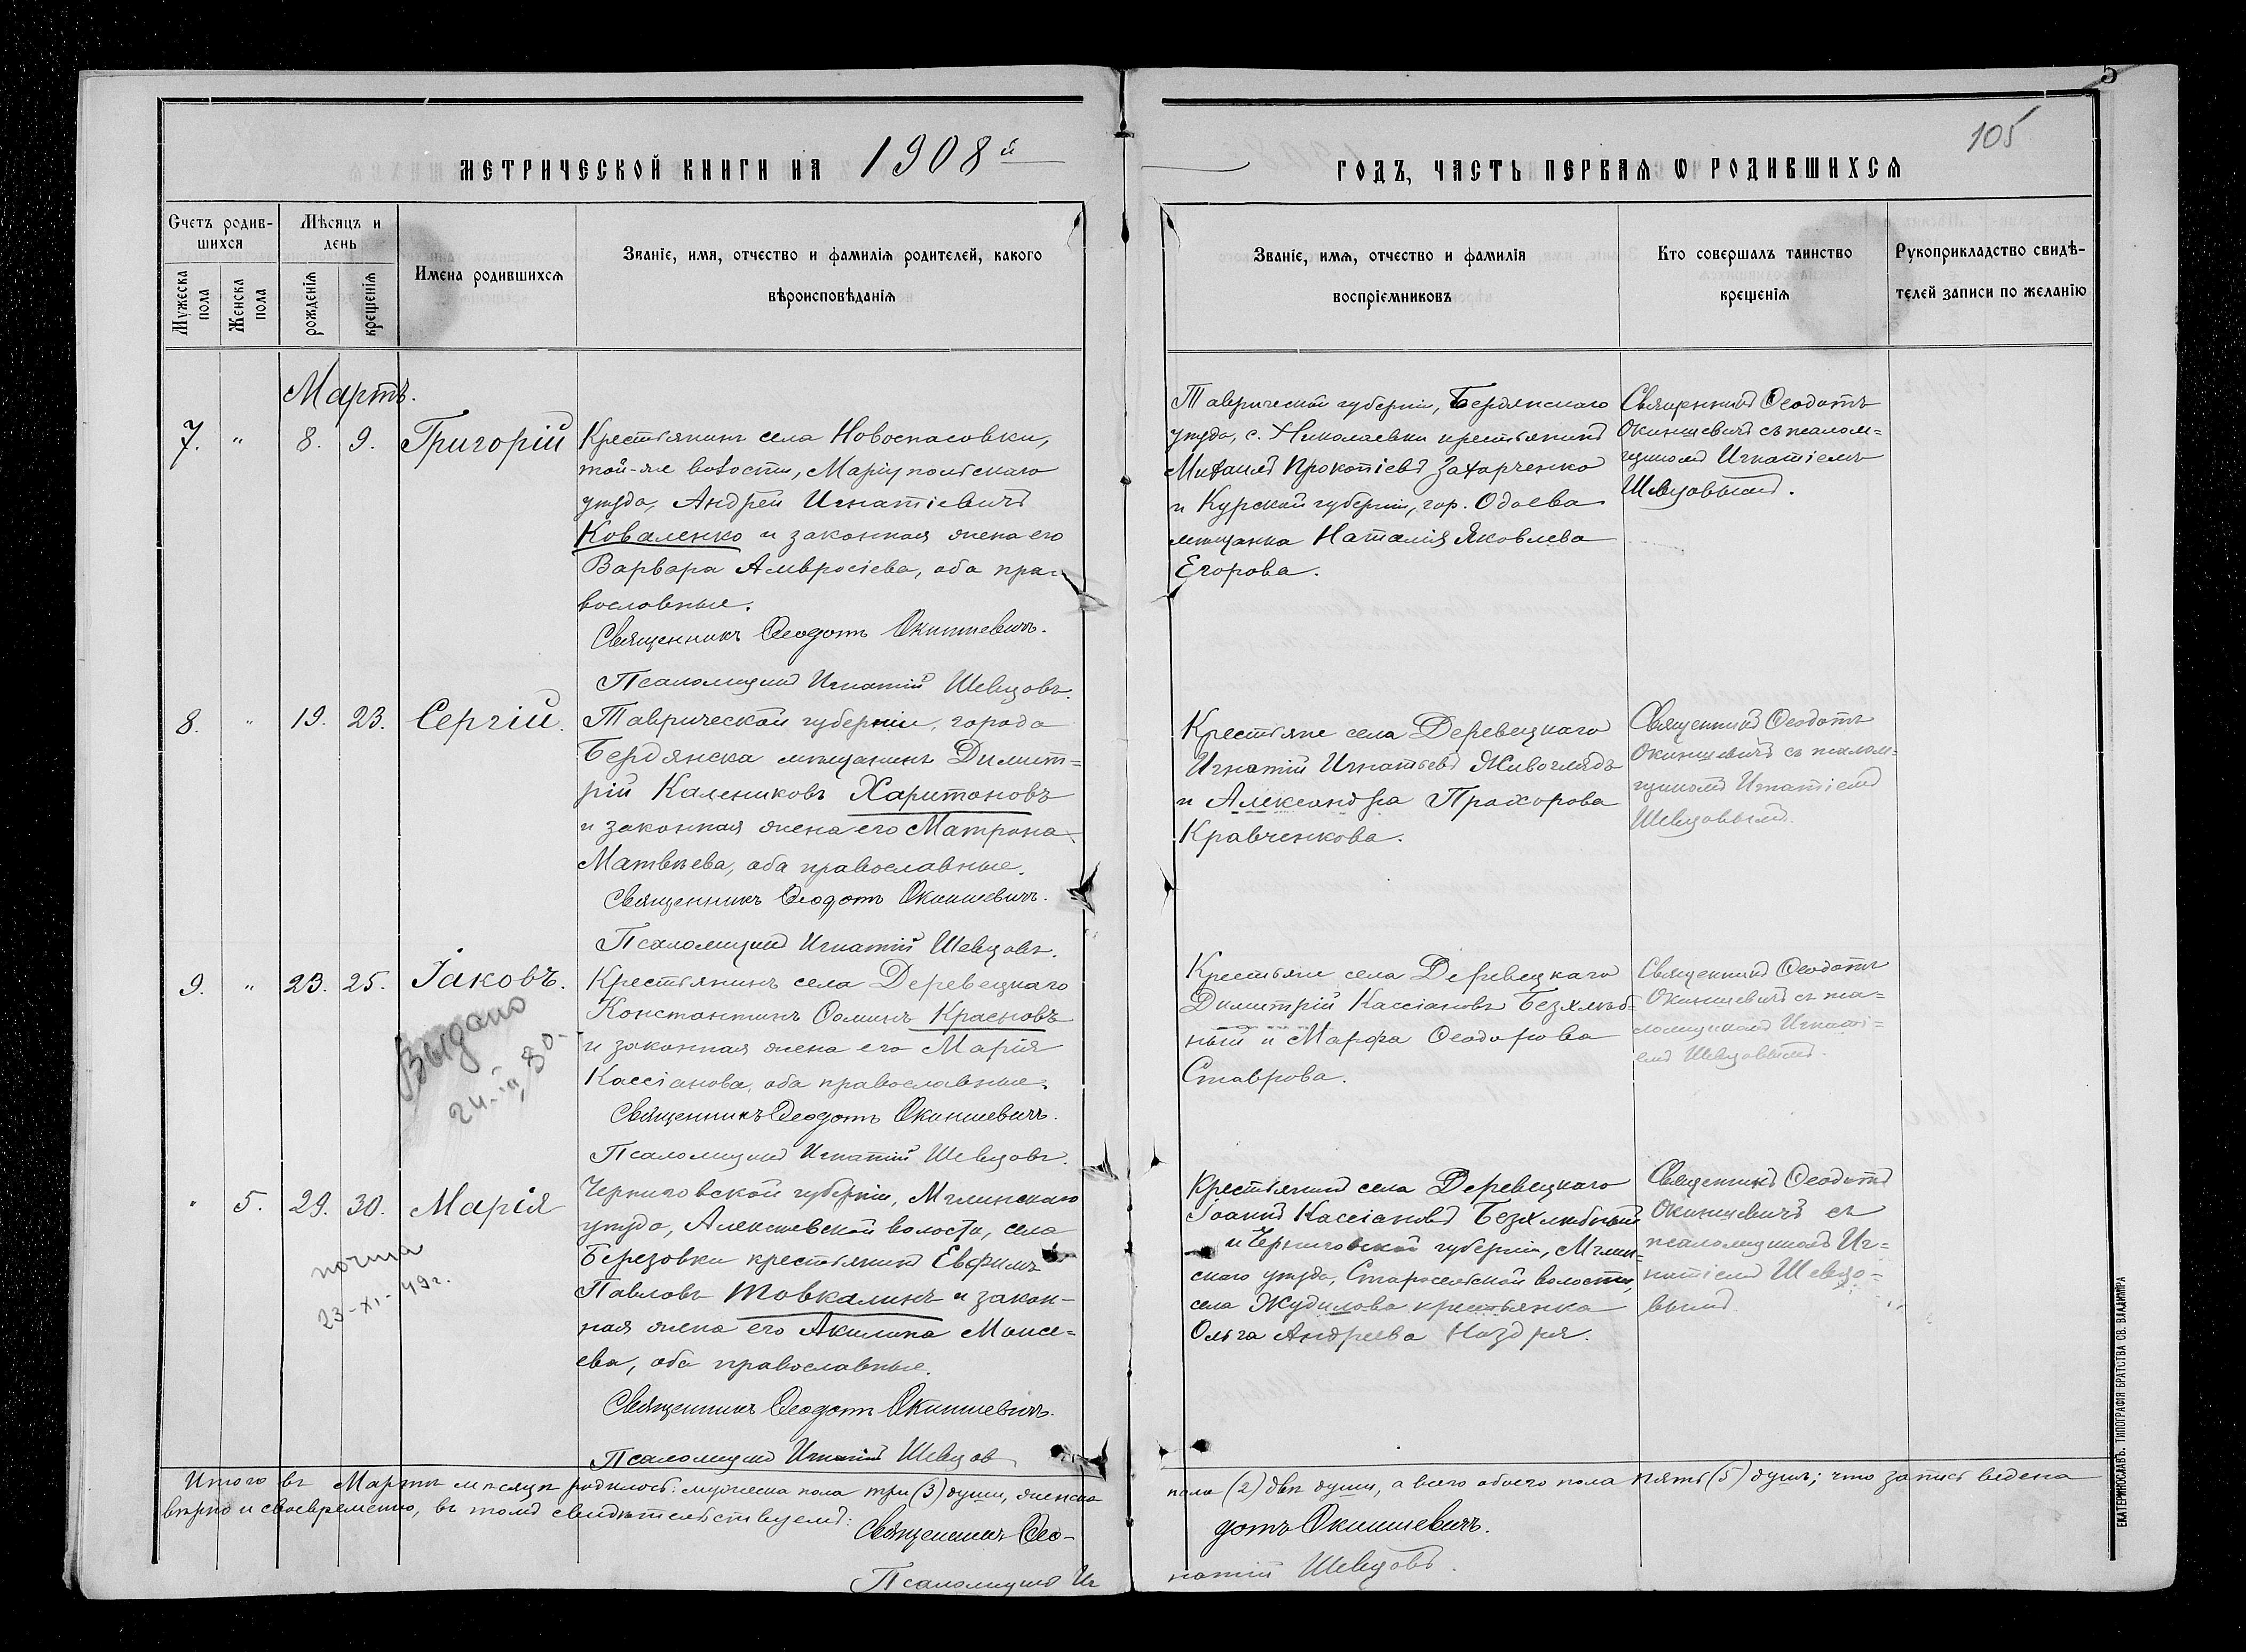 5
105
МЕТРИЧЕСКОЙ КНИГИ НА 1908й
ГОДЪ, ЧАСТЬ ПЕРВАЯ Ѡ РОДИВШИХСЯ
Счетъ родив-
шихся
Мужеска пола
Женска пола
Мѣсяцъ и
день
рожденія
крещенія
Имена родившихся
Званіе, имя, отчество и фамилія родителей, какого
вѣроисповѣданія
Званіе, имя, отчество и фамилія
воспріємниковъ
Кто совершалъ таинство
крещенія
Рукоприкладство свидѣ-
телей записи по желанію
Мартъ.
7. " 8. 9. Григорій
Крестьянинъ села Новоспасовки,
той-же волости, Маріупольскаго
уѣзда, Андрей Игнатіевичъ
Коваленко и законная жена его
Варвара Амвросіева, оба пра-
вославные.
Священникъ Ѳеодотъ Окиншевичъ.
Псаломщикъ Игнатій Шевцовъ.
Таврической губерніи, Бердянскаго
уѣзда, с. Николаевки крестьянинъ
Михаилъ Прокопіевъ Захарченко
и Курской губерніи, гор. Одоева
мѣщанка Наталія Яковлева
Егорова.
Священникъ Ѳеодотъ
Окиншевичъ съ псалом=
щикомъ Игнатіемъ
Шевцовымъ.
8. " 19. 23. Сергій.
Таврической губерніи, города
Бердянска мѣщанинъ Димит=
рій Калениковъ Харитоновъ
и законная жена его Матрона
Матвѣева, оба православные.
Священникъ Ѳеодотъ Окиншевичъ.
Псаломщикъ Игнатій Шевцовъ.
Крестьяне села Деревецкаго
Игнатій Игнатьевъ Живоглядъ
и Александра Прохорова
Кравченкова.
Священникъ Ѳеодотъ
Окиншевичъ съ псалом=
щикомъ Игнатіемъ
Шевцовымъ.
9. " 23. 25. Іаковъ.
Выдано
Крестьянинъ села Деревецкаго
Константинъ Ѳоминъ Красновъ
и законная жена его Марія
Кассіанова, оба православные.
Священникъ Ѳеодотъ Окиншевичъ.
Псаломщикъ Игнатій Шевцовъ.
Крестьяне села Деревецкаго
Димитрій Кассіановъ Безхлѣб-
ный и Марѳа Ѳеодорова
Ставрова.
Священникъ Ѳеодотъ
Окиншевичъ съ пса=
ломщикомъ Игнаті=
емъ Шевцовымъ.
" 5. 29. 30. Марія
почта
23-XI-49г.
Черниговской губерніи, Мглинскаго
уѣзда, Алексѣевской волости, села
Березовки крестьянинъ Евфимъ
Павловъ Товкалинъ и закон-
ная жена его Акилина Моисе=
ева, оба православные.
Священникъ Ѳеодотъ Окиншевичъ.
Псаломщикъ Игнатій Шевцов
Крестьянинъ села Деревецкаго
Іоаннъ Кассіановъ Безхлѣбный
и Черниговской губерніи, Мглин-
скаго уѣзда, Старосельской волости,
села Жудилова крестьянка
Ольга Андреева Наздря.
Священникъ Ѳеодотъ
Окиншевичъ съ
псаломщикомъ Иг=
натіемъ Шевцо=
вымъ
Итого въ Мартѣ мѣсяцѣ родилось: мужеска пола три (3) души, женска
пола (2) двѣ души, а всего обоего пола пять (5) душъ; что запись ведена
вѣрно и своевременно, въ томъ свидѣтельствуемъ:
Священникъ Ѳео-
дотъ Окиншевичъ.
Псаломщикъ Иг
натій Шевцовъ.
ЕКАТЕРИНОСЛАВЪ. ТИПОГРАФІЯ БРАТСТВА СВ. ВЛАДИМІРА